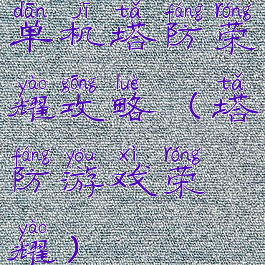 dān jī tǎ fáng róng
单机塔防荣
yào gōng lüè tǎ
耀攻略（塔
fáng yóu xì róng
防游戏荣
yào
耀）